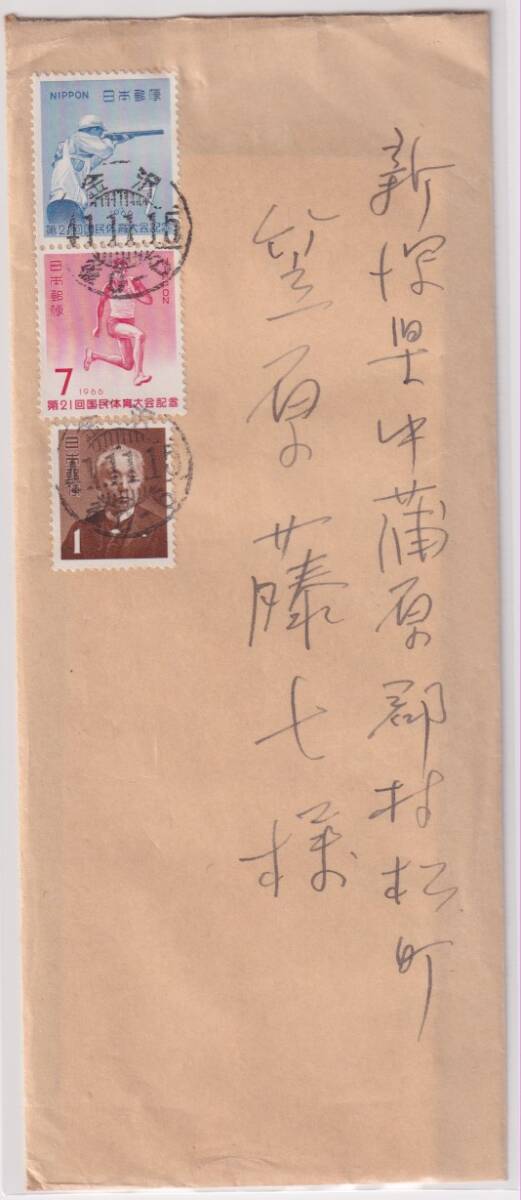 新潟県中蒲原郡村松町
笠原藤七様
NIPPON 日本郵便
1966
第21回国民体育大会記念
金沢
41.11.15
日本郵便
NIPPON
7
1966
第21回国民体育大会記念
日本郵便
1